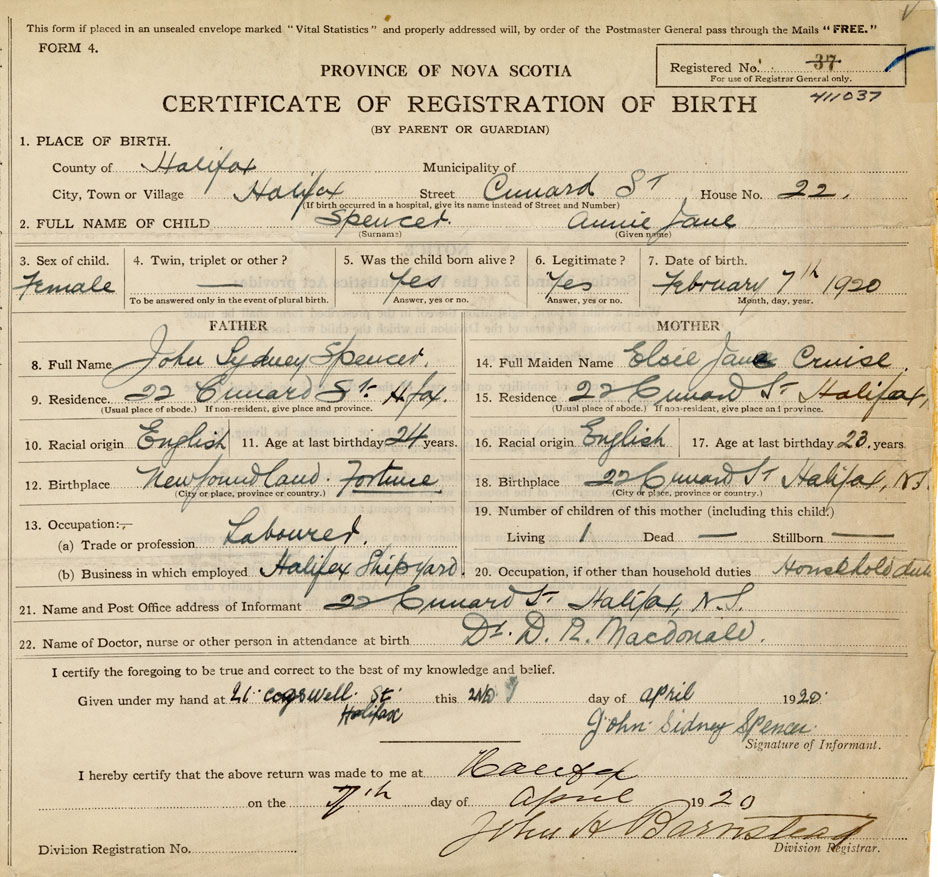 This form if placed in an unsealed envelope marked "Vital Statistics" and properly addressed will, by order of the Postmaster General pass through the Mails "FREE."
FORM 4.
Registered No. 37
For use of Registrar General only.
411037
PROVINCE OF NOVA SCOTIA
CERTIFICATE OF REGISTRATION OF BIRTH
(BY PARENT OR GUARDIAN)
1. PLACE OF BIRTH.
County of Halifax Municipality of
City, Town or Village Halifax Street Cunard St House No. 22.
(If birth occurred in a hospital, give its name instead of Street and Number)
2. FULL NAME OF CHILD Spencer. Annie Jane
(Surname) (Given name)
3. Sex of child. 4. Twin, triplet or other? 5. Was the child born alive? 6. Legitimate? 7. Date of birth.
Female — Yes Yes February 7th 1920
To be answered only in the event of plural birth. Answer, yes or no. Answer, yes or no. Month, day, year.
FATHER
8. Full Name John Sydney Spencer.
9. Residence. 22 Cunard St. Hfax.
(Usual place of abode.) If non-resident, give place and province.
10. Racial origin English 11. Age at last birthday 24 years.
12. Birthplace Newfoundland. Fortune
(City or place, province or country.)
13. Occupation:-
(a) Trade or profession Labourer.
(b) Business in which employed Halifax Shipyard.
MOTHER
14. Full Maiden Name Elsie Jane Cruise
15. Residence 22 Cunard St Halifax,
(Usual place of abode.) If non-resident, give place and province.
16. Racial origin English 17. Age at last birthday 23. years.
18. Birthplace 22 Cunard St Halifax, N.S.
(City or place, province or country.)
19. Number of children of this mother (including this child.)
Living 1 Dead — Stillborn —
20. Occupation, if other than household duties Household duties
21. Name and Post Office address of Informant 22 Cunard St Halifax, N.S.
22. Name of Doctor, nurse or other person in attendance at birth Dr. D. R. Macdonald.
I certify the foregoing to be true and correct to the best of my knowledge and belief.
Given under my hand at 21. Cogswell St. this 2ND day of april 1920
Halifax
John Sidney Spencer
Signature of Informant.
I hereby certify that the above return was made to me at Halifax
on the 7th day of April 1920
John A Barnstead
Division Registration No. Division Registrar.